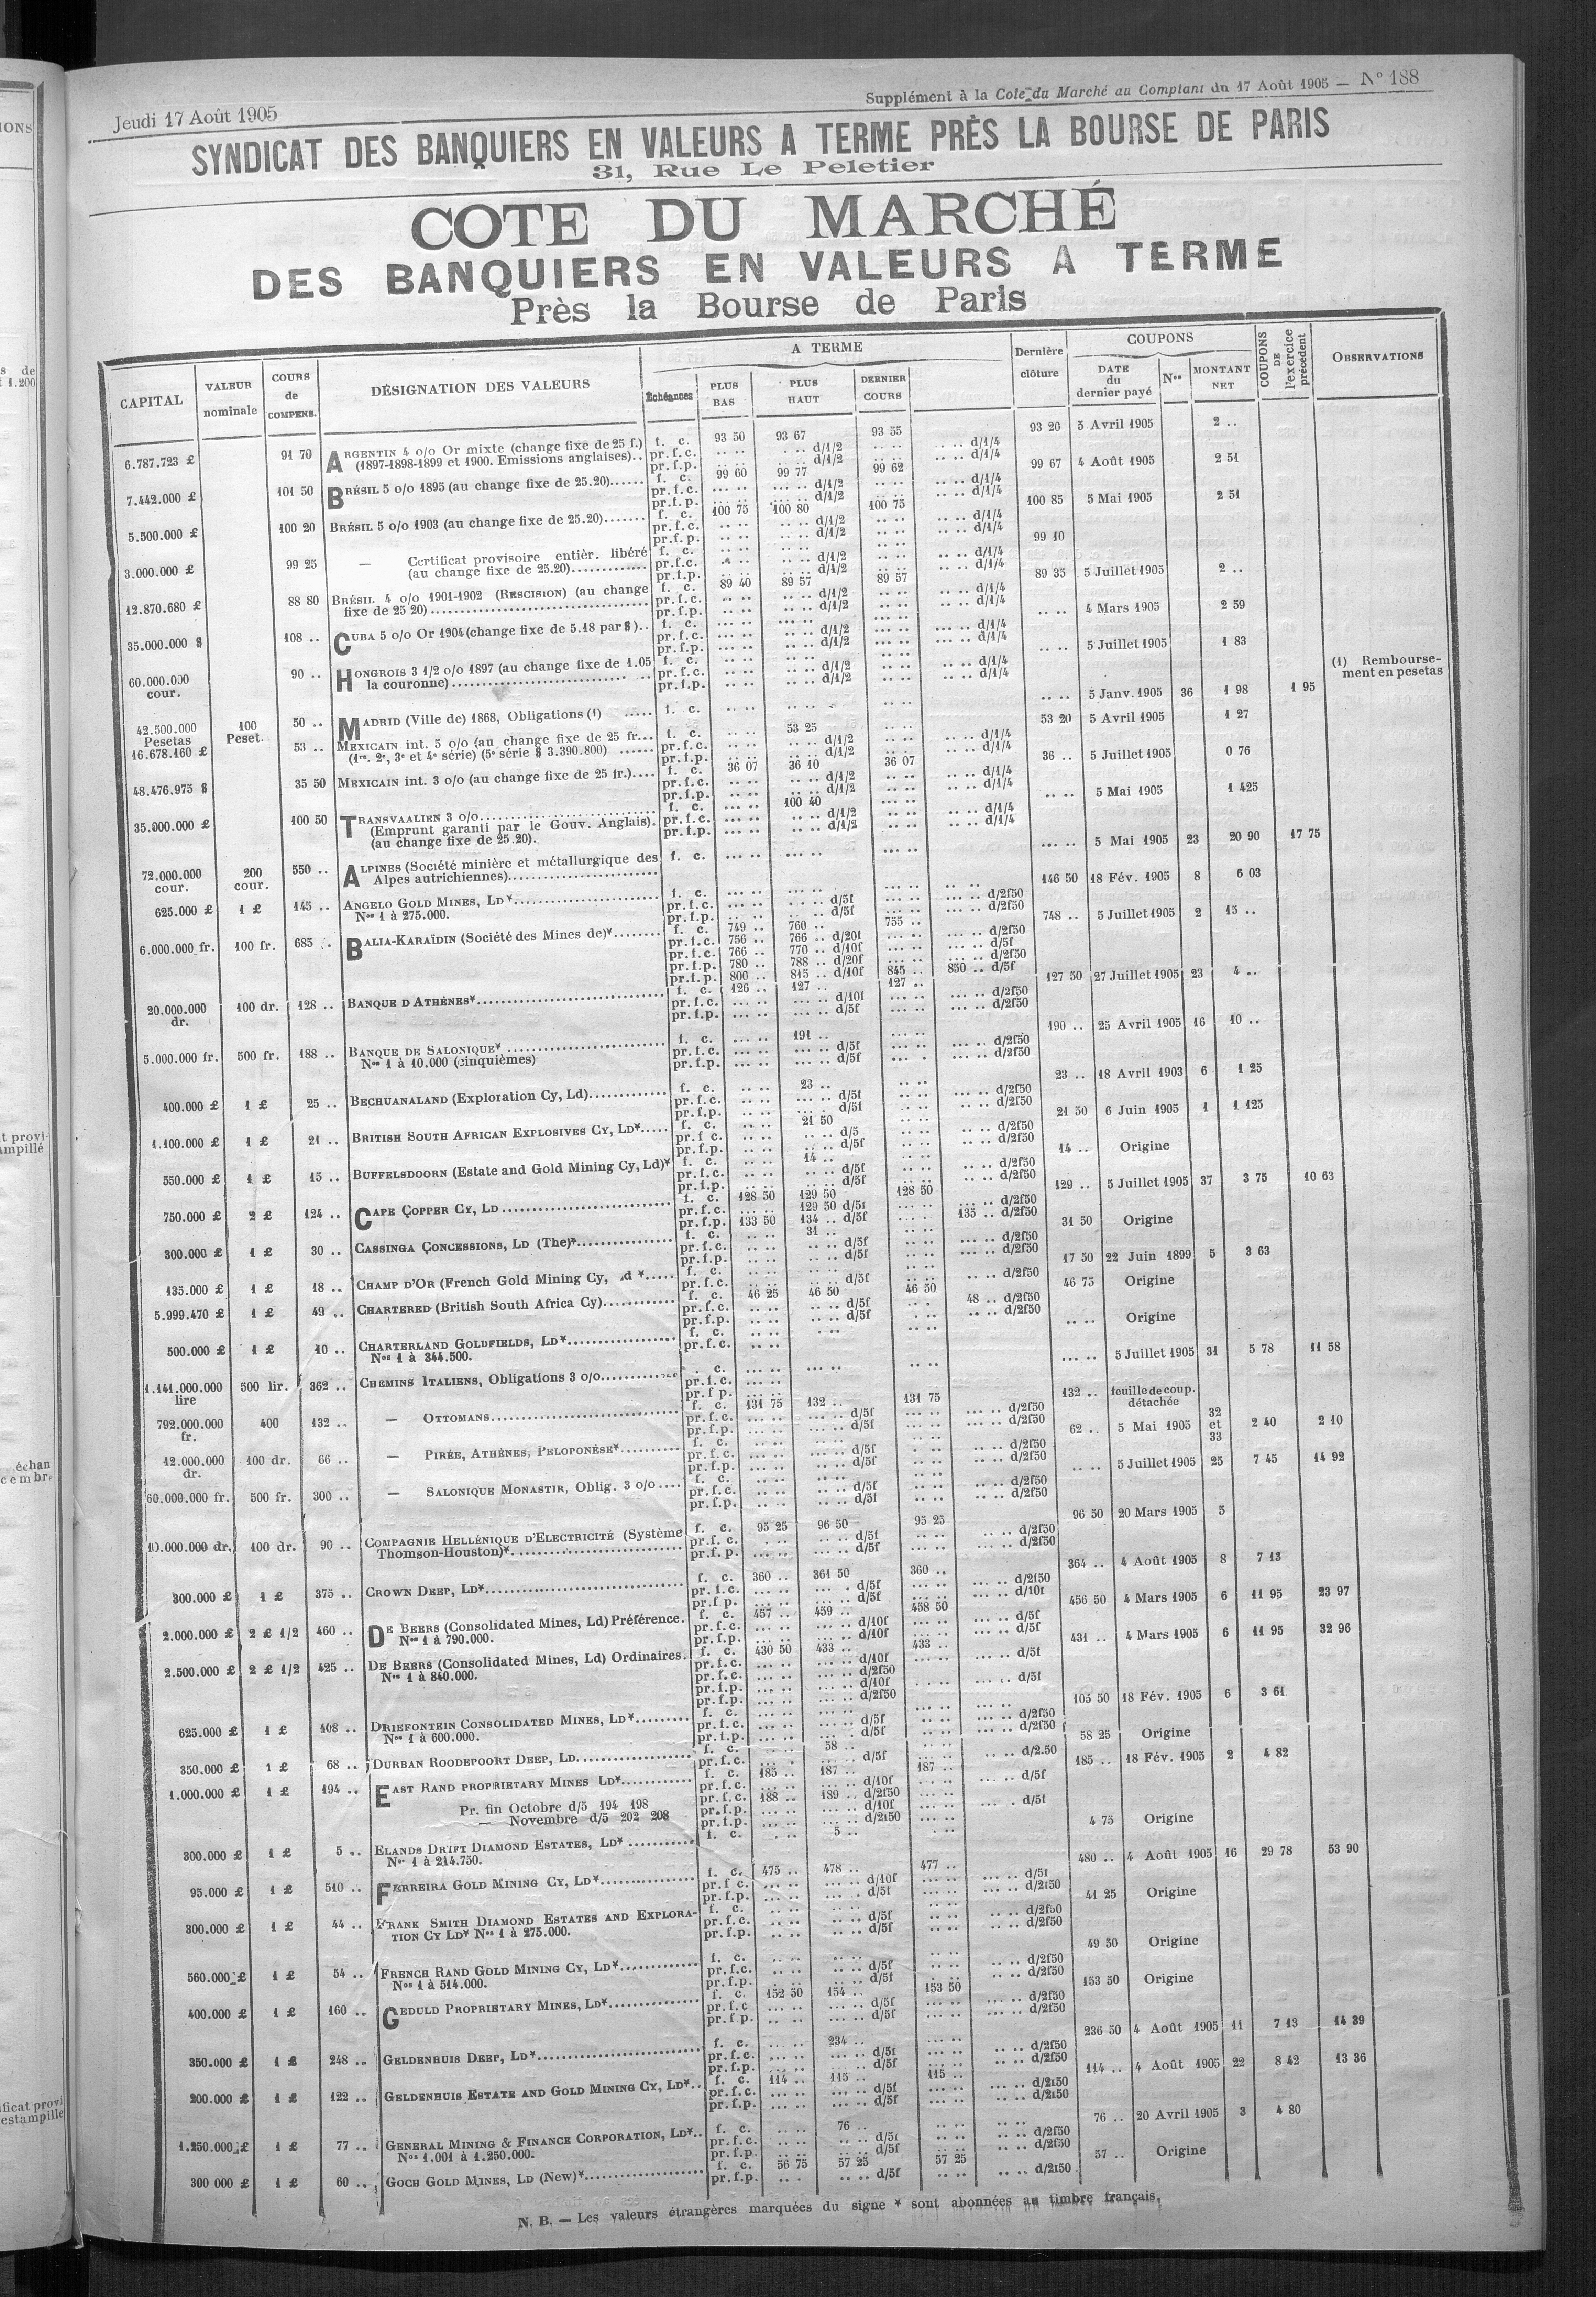 Jeudi 17 Août 1905
Supplément à la Cote du Marché au Comptant du 17 Août 1905 — N° 188
SYNDICAT DES BANQUIERS EN VALEURS A TERME PRÈS LA BOURSE DE PARIS
31, Rue Le Peletier
COTE DU MARCHÉ
DES BANQUIERS EN VALEURS A TERME
Près la Bourse de Paris
CAPITAL
VALEUR nominale
COURS de COMPENS.
DÉSIGNATION DES VALEURS
A TERME
Échéances
PLUS BAS
PLUS HAUT
DERNIER COURS
Dernière clôture
COUPONS
DATE du dernier payé
Nos
MONTANT NET
COUPONS DE l'exercice précédent
OBSERVATIONS
6.787.723 £ 91 70 ARGENTIN 4 o/o Or mixte (change fixe de 25 f.) f. c. 93 50 93 67 93 55 93 20 5 Avril 1905 2 ..
(1897-1898-1899 et 1900. Emissions anglaises).. pr.f.c. d/1/2 d/1/4
pr.f.p. d/1/2 d/1/4
7.442.000 £ 101 50 BRÉSIL 5 o/o 1895 (au change fixe de 25.20) f. c. 99 60 99 77 99 62 99 67 4 Août 1905 2 51
pr.f.c. d/1/2 d/1/4
pr.f.p. d/1/2 d/1/4
5.500.000 £ 100 20 BRÉSIL 5 o/o 1903 (au change fixe de 25.20) f. c. 100 75 100 80 100 75 100 85 5 Mai 1905 2 51
pr.f.c. d/1/2 d/1/4
pr.f.p. d/1/2 d/1/4
3.000.000 £ 99 25 — Certificat provisoire entièr. libéré f. c. 99 10
(au change fixe de 25.20) pr.f.c. d/1/2 d/1/4
pr.f.p. d/1/2 d/1/4
12.870.680 £ 88 80 BRÉSIL 4 o/o 1901-1902 (RESCISION) (au change f. c. 89 40 89 57 89 57 89 35 5 Juillet 1905 2 ..
fixe de 25 20) pr.f.c. d/1/2 d/1/4
pr.f.p. d/1/2 d/1/4
35.000.000 $ 108 .. CUBA 5 o/o Or 1904 (change fixe de 5.18 par $).. f. c. 4 Mars 1905 2 59
pr.f.c. d/1/2 d/1/4
pr.f.p. d/1/2 d/1/4
60.000.000 cour. 90 .. HONGROIS 3 1/2 o/o 1897 (au change fixe de 1.05 f. c. 5 Juillet 1905 1 83
la couronne) pr.f.c. d/1/2 d/1/4
pr.f.p. d/1/2 d/1/4
(1) Remboursement en pesetas
42.500.000 Pesetas 100 Peset. 50 .. MADRID (Ville de) 1868, Obligations (1) f. c. 5 Janv. 1905 36 1 98 1 95
16.678.160 £ 53 .. MEXICAIN int. 5 o/o (au change fixe de 25 fr... f. c. 53 25 53 20 5 Avril 1905 1 27
(1re. 2e, 3e et 4e série) (5e série $ 3.390.800) pr.f.c. d/1/2 d/1/4
pr.f.p. d/1/2 d/1/4
48.476.975 $ 35 50 MEXICAIN int. 3 o/o (au change fixe de 25 fr.) f. c. 36 07 36 10 36 07 36 .. 5 Juillet 1905 0 76
pr.f.c. d/1/2 d/1/4
pr.f.p. d/1/2 d/1/4
35.000.000 £ 100 50 TRANSVAALIEN 3 o/o f. c. 100 40 5 Mai 1905 1 425
(Emprunt garanti par le Gouv. Anglais). pr.f.c. d/1/2 d/1/4
(au change fixe de 25.20). pr.f.p. d/1/2 d/1/4
72.000.000 cour. 200 cour. 550 .. ALPINES (Société minière et métallurgique des f. c. 5 Mai 1905 23 20 90 17 75
Alpes autrichiennes)
625.000 £ 1 £ 145 .. ANGELO GOLD MINES, LD* f. c. 146 50 18 Fév. 1905 8 6 03
Nos 1 à 275.000. pr.f.c. d/5f d/2f50
pr.f.p. d/5f d/2f50
6.000.000 fr. 100 fr. 685 .. BALIA-KARAÏDIN (Société des Mines de)* f. c. 749 .. 760 .. 755 .. 748 .. 5 Juillet 1905 2 15 ..
pr.f.c. 756 .. 766 .. d/20f d/2f50
pr.f.c. 766 .. 770 .. d/10f d/5f
pr.f.p. 780 .. 788 .. d/20f d/2f50
pr.f.p. 800 .. 815 .. d/10f 845 .. 850 .. d/5f
20.000.000 dr. 100 dr. 128 .. BANQUE D'ATHÈNES* f. c. 126 .. 127 .. 127 .. 127 50 27 Juillet 1905 23 4 ..
pr.f.c. d/10f d/2f50
pr.f.p. d/5f d/2f50
5.000.000 fr. 500 fr. 188 .. BANQUE DE SALONIQUE* f. c. 191 .. 190 .. 25 Avril 1905 16 10 ..
Nos 1 à 10.000 (cinquièmes) pr.f.c. d/5f d/2f50
pr.f.p. d/5f d/2f50
400.000 £ 1 £ 25 .. BECHUANALAND (Exploration Cy, Ld) f. c. 23 .. 23 .. 18 Avril 1903 6 1 25
pr.f.c. d/5f d/2f50
pr.f.p. d/5f d/2f50
1.100.000 £ 1 £ 21 .. BRITISH SOUTH AFRICAN EXPLOSIVES CY, LD* f. c. 21 50 21 50 6 Juin 1905 1 1 125
pr.f.c. d/5 d/2f50
pr.f.p. d/5f d/2f50
550.000 £ 1 £ 15 .. BUFFELSDOORN (Estate and Gold Mining Cy, Ld)* f. c. 14 .. 14 .. Origine
pr.f.c. d/5f d/2f50
pr.f.p. d/5f d/2f50
750.000 £ 2 £ 124 .. CAPE COPPER CY, LD f. c. 128 50 129 50 128 50 129 .. 5 Juillet 1905 37 3 75 10 63
pr.f.c. 129 50 d/5f d/2f50
pr.f.p. 133 50 134 .. d/5f 135 .. d/2f50
300.000 £ 1 £ 30 .. CASSINGA CONCESSIONS, LD (The)* f. c. 31 .. 31 50 Origine
pr.f.c. d/5f d/2f50
pr.f.p. d/5f d/2f50
135.000 £ 1 £ 18 .. CHAMP D'OR (French Gold Mining Cy, d * f. c. 17 50 22 Juin 1899 5 3 63
pr.f.c. d/5f d/2f50
5.999.470 £ 1 £ 49 .. CHARTERED (British South Africa Cy) f. c. 46 25 46 50 46 50 46 75 Origine
pr.f.c. d/5f 48 .. d/2f50
pr.f.p. d/5f d/2f50
500.000 £ 1 £ 10 .. CHARTERLAND GOLDFIELDS, LD* f. c. Origine
Nos 1 à 344.500. pr.f.c.
1.141.000.000 lire 500 lir. 362 .. CHEMINS ITALIENS, Obligations 3 o/o c. 5 Juillet 1905 31 5 78 11 58
pr.f.c.
pr.f.p.
792.000.000 fr. 400 132 .. — OTTOMANS f. c. 131 75 132 .. 131 75 132 .. feuille de coup. détachée
pr.f.c. d/5f d/2f50
pr.f.p. d/5f d/2f50
12.000.000 dr. 100 dr. 66 .. — PIRÉE, ATHÈNES, PELOPONÈSE* f. c. 62 .. 5 Mai 1905 32 et 33 2 40 2 10
pr.f.c. d/5f d/2f50
pr.f.p. d/5f d/2f50
60.000.000 fr. 500 fr. 300 .. — SALONIQUE MONASTIR, Oblig. 3 o/o f. c. 5 Juillet 1905 25 7 45 14 92
pr.f.c. d/5f d/2f50
pr.f.p. d/5f d/2f50
10.000.000 dr. 100 dr. 90 .. COMPAGNIE HELLÉNIQUE D'ELECTRICITÉ (Système f. c. 95 25 96 50 95 25 96 50 20 Mars 1905 5
Thomson-Houston)* pr.f.c. d/5f d/2f50
pr.f.p. d/5f d/2f50
300.000 £ 1 £ 375 .. CROWN DEEP, LD* f. c. 360 .. 361 50 360 .. 364 .. 4 Août 1905 8 7 13
pr.f.c. d/5f d/2f50
pr.f.p. d/5f d/10f
2.000.000 £ 2 £ 1/2 460 .. DE BEERS (Consolidated Mines, Ld) Préférence. f. c. 457 .. 459 .. 458 50 456 50 4 Mars 1905 6 11 95 23 97
Nos 1 à 790.000. pr.f.c. d/10f d/5f
pr.f.p. d/10f d/5f
2.500.000 £ 2 £ 1/2 425 .. DE BEERS (Consolidated Mines, Ld) Ordinaires. f. c. 430 50 433 .. 433 .. 431 .. 4 Mars 1905 6 11 95 32 96
Nos 1 à 840.000. pr.f.c. d/10f d/5f
pr.f.c. d/2f50
pr.f.p. d/10f d/5f
pr.f.p. d/2f50
625.000 £ 1 £ 108 .. DRIEFONTEIN CONSOLIDATED MINES, LD* f. c. 105 50 18 Fév. 1905 6 3 61
Nos 1 à 600.000. pr.f.c. d/5f d/2f50
pr.f.p. d/5f d/2f50
350.000 £ 1 £ 68 .. DURBAN ROODEPOORT DEEP, LD f. c. 58 .. 58 25 Origine
pr.f.c. d/5f d/2.50
1.000.000 £ 1 £ 194 .. EAST RAND PROPRIETARY MINES LD* f. c. 185 .. 187 .. 187 .. 185 .. 18 Fév. 1905 2 4 82
pr.f.c. d/10f d/5f
Pr. fin Octobre d/5 194 198 pr.f.c. 188 .. 189 .. d/2f50
— Novembre d/5 202 208 pr.f.p. d/10f d/5f
pr.f.p. d/2f50
300.000 £ 1 £ 5 .. ELANDS DRIFT DIAMOND ESTATES, LD* f. c. 5 .. 4 75 Origine
Nos 1 à 214.750.
95.000 £ 1 £ 510 .. FERREIRA GOLD MINING CY, LD* f. c. 475 .. 478 .. 477 .. 480 .. 4 Août 1905 16 29 78 53 90
pr.f.c. d/10f d/5f
pr.f.p. d/5f d/2f50
300.000 £ 1 £ 44 .. FRANK SMITH DIAMOND ESTATES AND EXPLORA- f. c. 41 25 Origine
TION CY LD* Nos 1 à 275.000. pr.f.c. d/5f d/2f50
pr.f.p. d/5f d/2f50
560.000 £ 1 £ 54 .. FRENCH RAND GOLD MINING CY, LD* f. c. 49 50 Origine
Nos 1 à 514.000. pr.f.c. d/5f d/2f50
pr.f.p. d/5f d/2f50
400.000 £ 1 £ 160 .. GEDULD PROPRIETARY MINES, LD* f. c. 152 50 154 .. 153 50 153 50 Origine
pr.f.c. d/5f d/2f50
pr.f.p. d/5f d/2f50
350.000 £ 1 £ 248 .. GELDENHUIS DEEP, LD* f. c. 234 .. 236 50 4 Août 1905 11 7 13 14 39
pr.f.c. d/5f d/2f50
pr.f.p. d/5f d/2f50
200.000 £ 1 £ 122 .. GELDENHUIS ESTATE AND GOLD MINING CY, LD* f. c. 114 .. 115 .. 115 .. 114 .. 4 Août 1905 22 8 42 13 36
pr.f.c. d/5f d/2f50
pr.f.p. d/5f d/2f50
1.250.000 £ 1 £ 77 .. GENERAL MINING & FINANCE CORPORATION, LD* f. c. 76 .. 76 .. 20 Avril 1905 3 4 80
Nos 1.001 à 1.250.000. pr.f.c. d/5f d/2f50
pr.f.p. d/5f d/2f50
300 000 £ 1 £ 60 .. GOCH GOLD MINES, LD (New)* f. c. 56 75 57 25 57 25 57 .. Origine
pr.f.p. d/5f d/2f50
N. B. — Les valeurs étrangères marquées du signe * sont abonnées au timbre français.